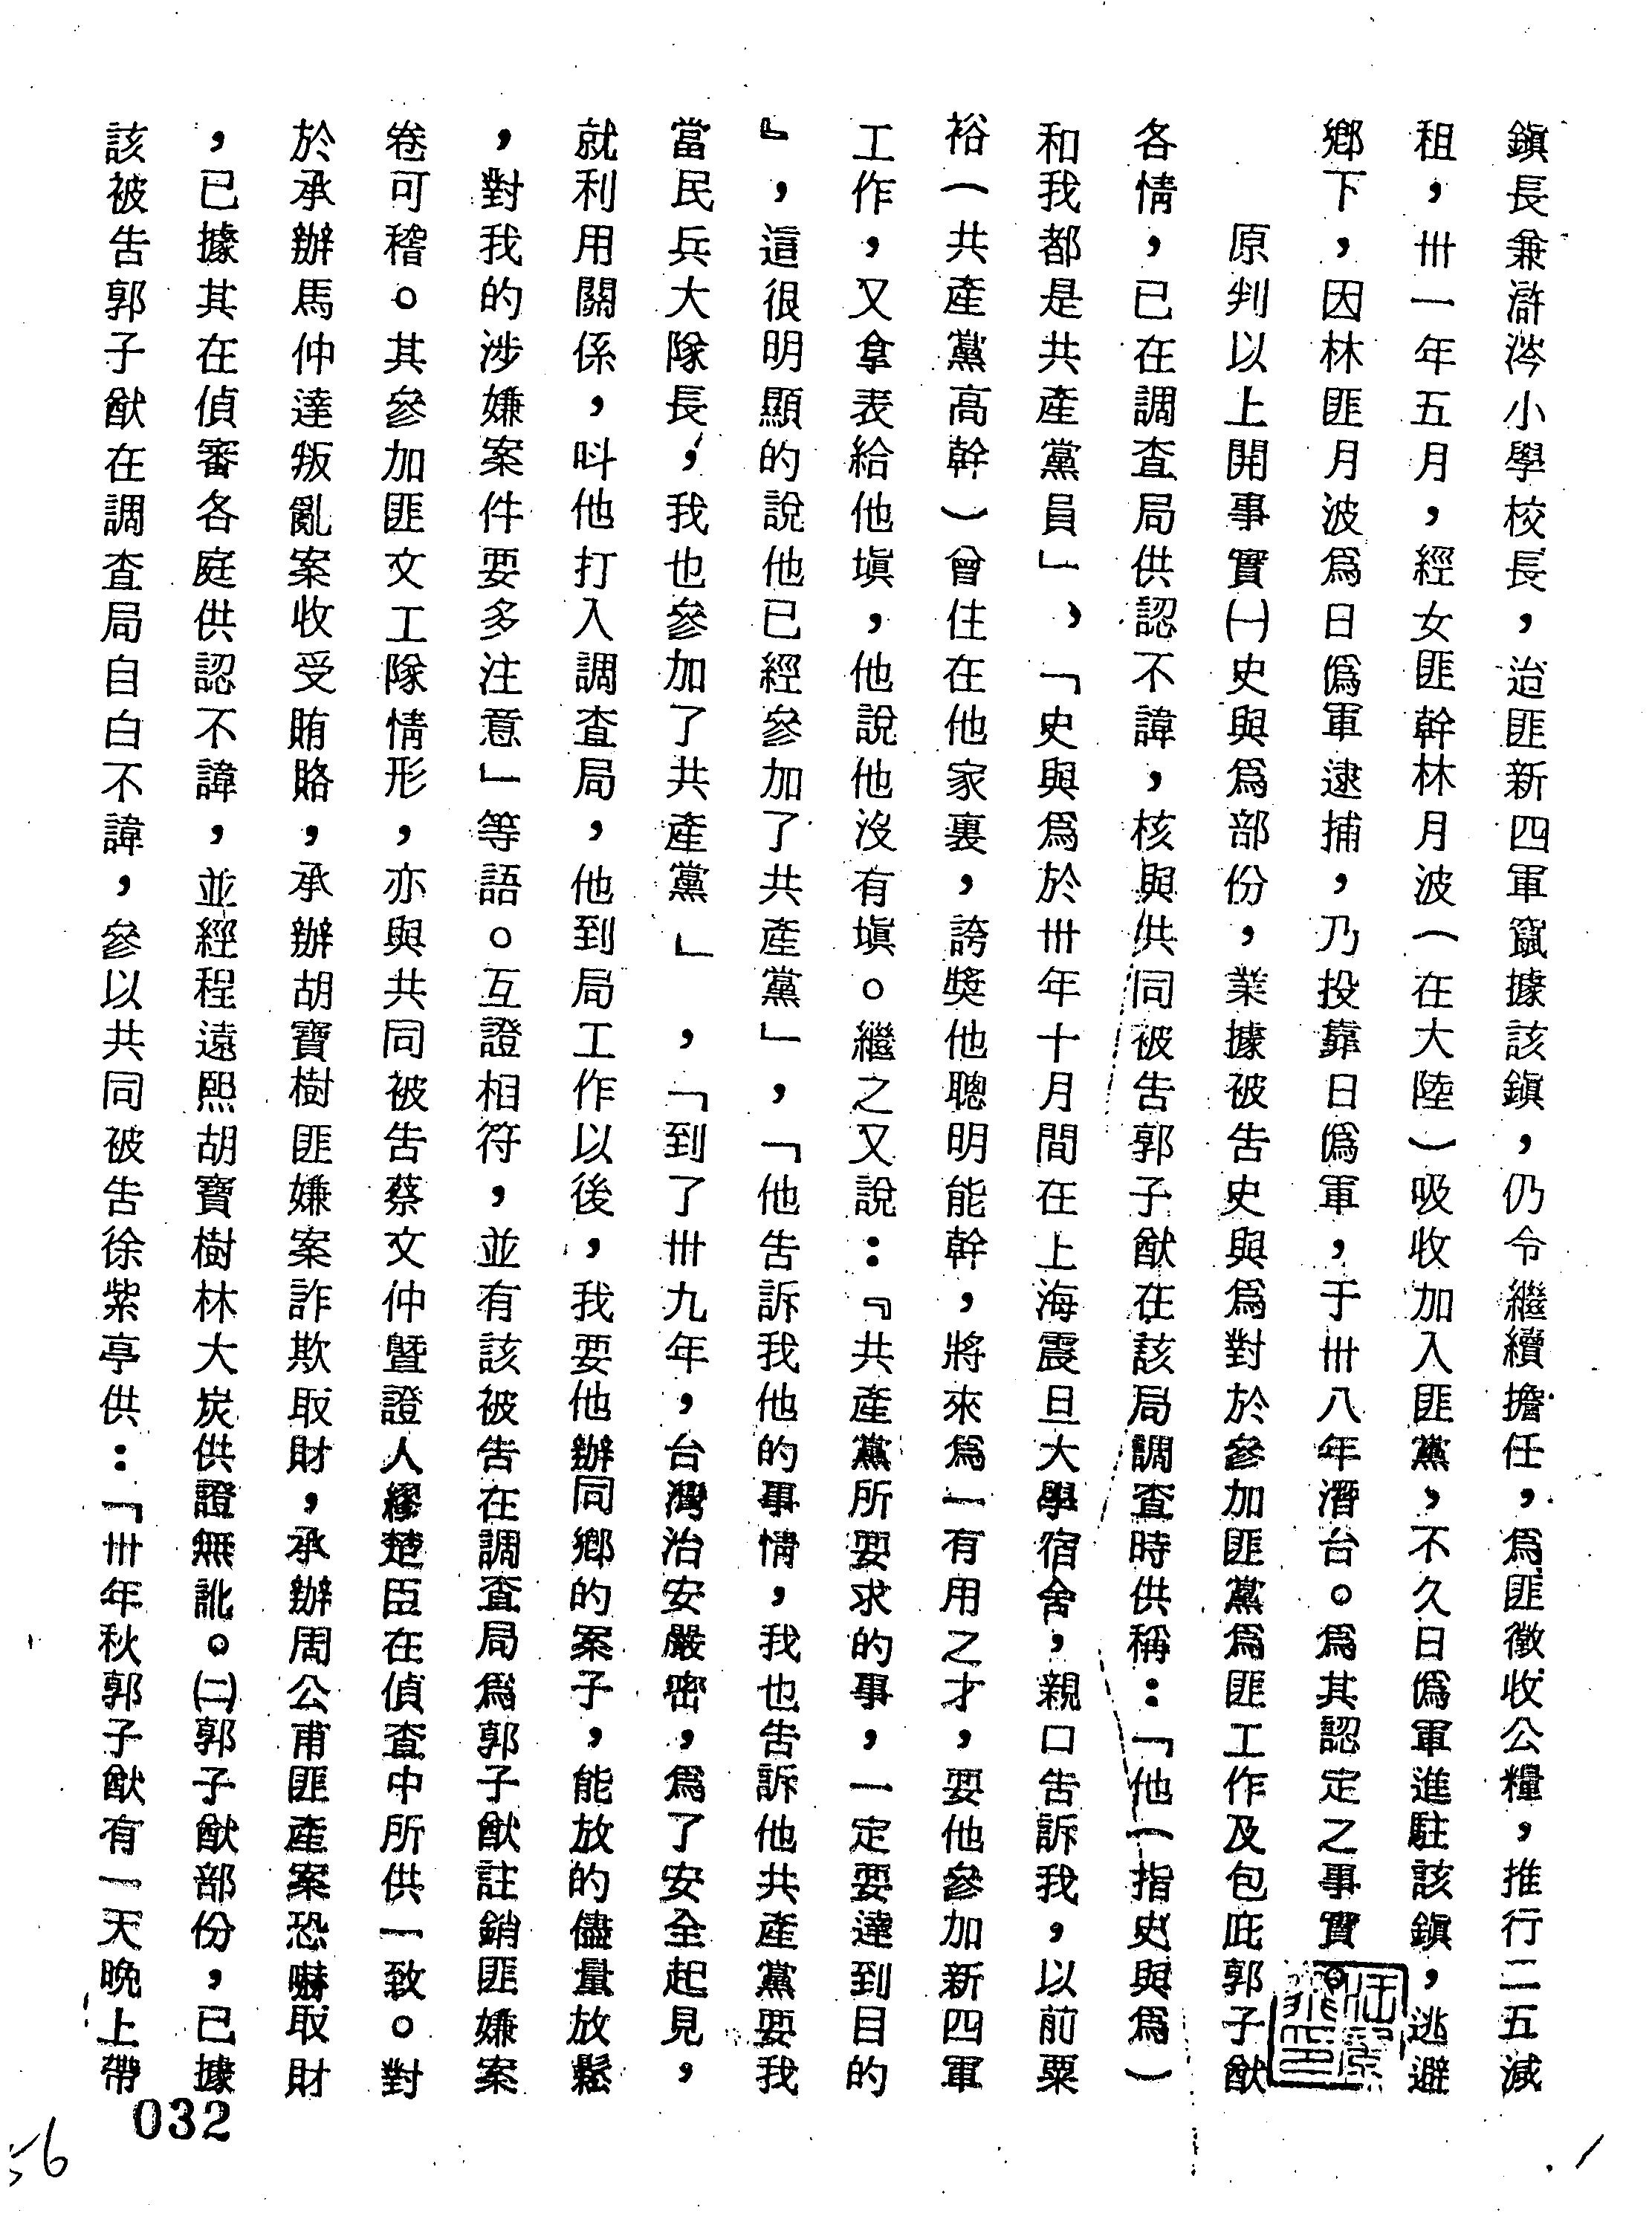 鎭長兼滸涔小學校長，迨匪新四軍竄據該鎭，仍令繼續擔任，爲匪徵收公糧，推行二五減
租，卅一年五月，經女匪幹林月波（在大陸）吸收加入匪黨，不久日僞軍進駐該鎭，逃避
鄉下，因林匪月波爲日僞軍逮捕，乃投靠日僞軍，于卅八年潛台。爲其認定之事實。
原判以上開事實㈠史與爲部份，業據被告史與爲對於參加匪黨爲匪工作及包庇郭子猷
各情，已在調查局供認不諱，核與共同被告郭子猷在該局調查時供稱：「他（指史與爲）
和我都是共產黨員」，「史與爲於卅年十月間在上海震旦大學宿舍，親口告訴我，以前粟
裕（共產黨高幹）曾住在他家裏，誇獎他聰明能幹，將來爲一有用之才，要他參加新四軍
工作，又拿表給他塡，他說他沒有塡。繼之又說：『共產黨所要求的事，一定要達到目的
』，這很明顯的說他已經參加了共產黨」，「他告訴我他的事情，我也告訴他共產黨要我
當民兵大隊長，我也參加了共產黨」，「到了卅九年，台灣治安嚴密，爲了安全起見，
就利用關係，叫他打入調查局，他到局工作以後，我要他辦同鄉的案子，能放的儘量放鬆
，對我的涉嫌案件要多注意」等語。互證相符，並有該被告在調查局爲郭子猷註銷匪嫌案
卷可稽。其參加匪文工隊情形，亦與共同被告蔡文仲曁證人繆楚臣在偵查中所供一致。對
於承辦馬仲達叛亂案收受賄賂，承辦胡寶樹匪嫌案詐欺取財，承辦周公甫匪產案恐嚇取財
，已據其在偵審各庭供認不諱，並經程遠熙胡寶樹林大炭供證無訛。㈡郭子猷部份，已據
該被告郭子猷在調查局自白不諱，參以共同被告徐紫亭供：「卅年秋郭子猷有一天晚上帶
032
56